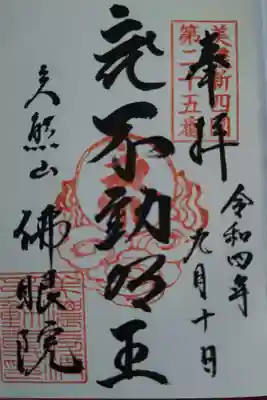 奉拝
美濃新四国
第二十五番
令和四年
九月十日
不動明王
熊山
佛眼院